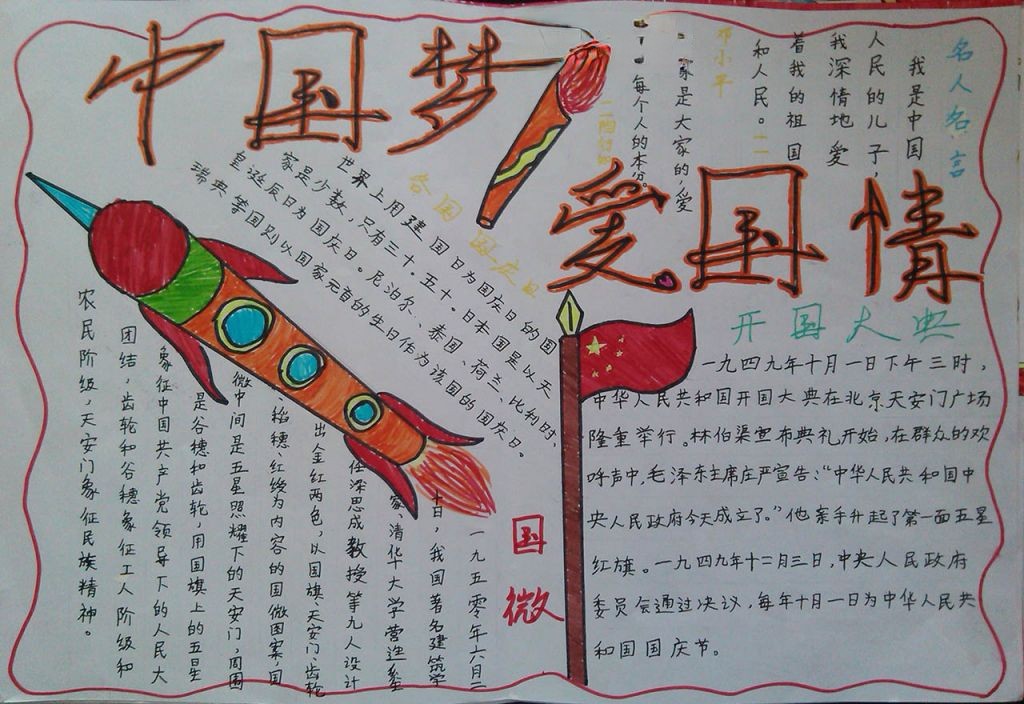 中国梦
爱国情
名人名言
我是中国
人民的儿子，
我深情地爱
着我的祖国
和人民。——
邓小平
家是大家的，爱
每个人的本份
各国国庆日
世界上用建国日为国庆日的国
家是少数，只有三十。五十。日本国是以天
皇诞辰日为国庆日。尼泊尔、泰国、荷兰、比利时、
瑞典等国则以国家元首的生日作为该国的国庆日。
开国大典
一九四九年十月一日下午三时，
中华人民共和国开国大典在北京天安门广场
隆重举行。林伯渠宣布典礼开始，在群众的欢
呼声中，毛泽东主席庄严宣告：“中华人民共和国中
央人民政府今天成立了。”他亲手升起了第一面五星
红旗。一九四九年十二月三日，中央人民政府
委员会通过决议，每年十月一日为中华人民共
和国国庆节。
国微
一九五零年六月二
十日，我国著名建筑学
家、清华大学营造系
任深思成教授等九人设计
出金红两色，以国旗、天安门、齿轮
、稻穗、红绶为内容的国微图案，国
微中间是五星照耀下的天安门，周围
是谷穗和齿轮，用国旗上的五星
象征中国共产党领导下的人民大
团结，齿轮和谷穗象征工人阶级和
农民阶级，天安门象征民族精神。